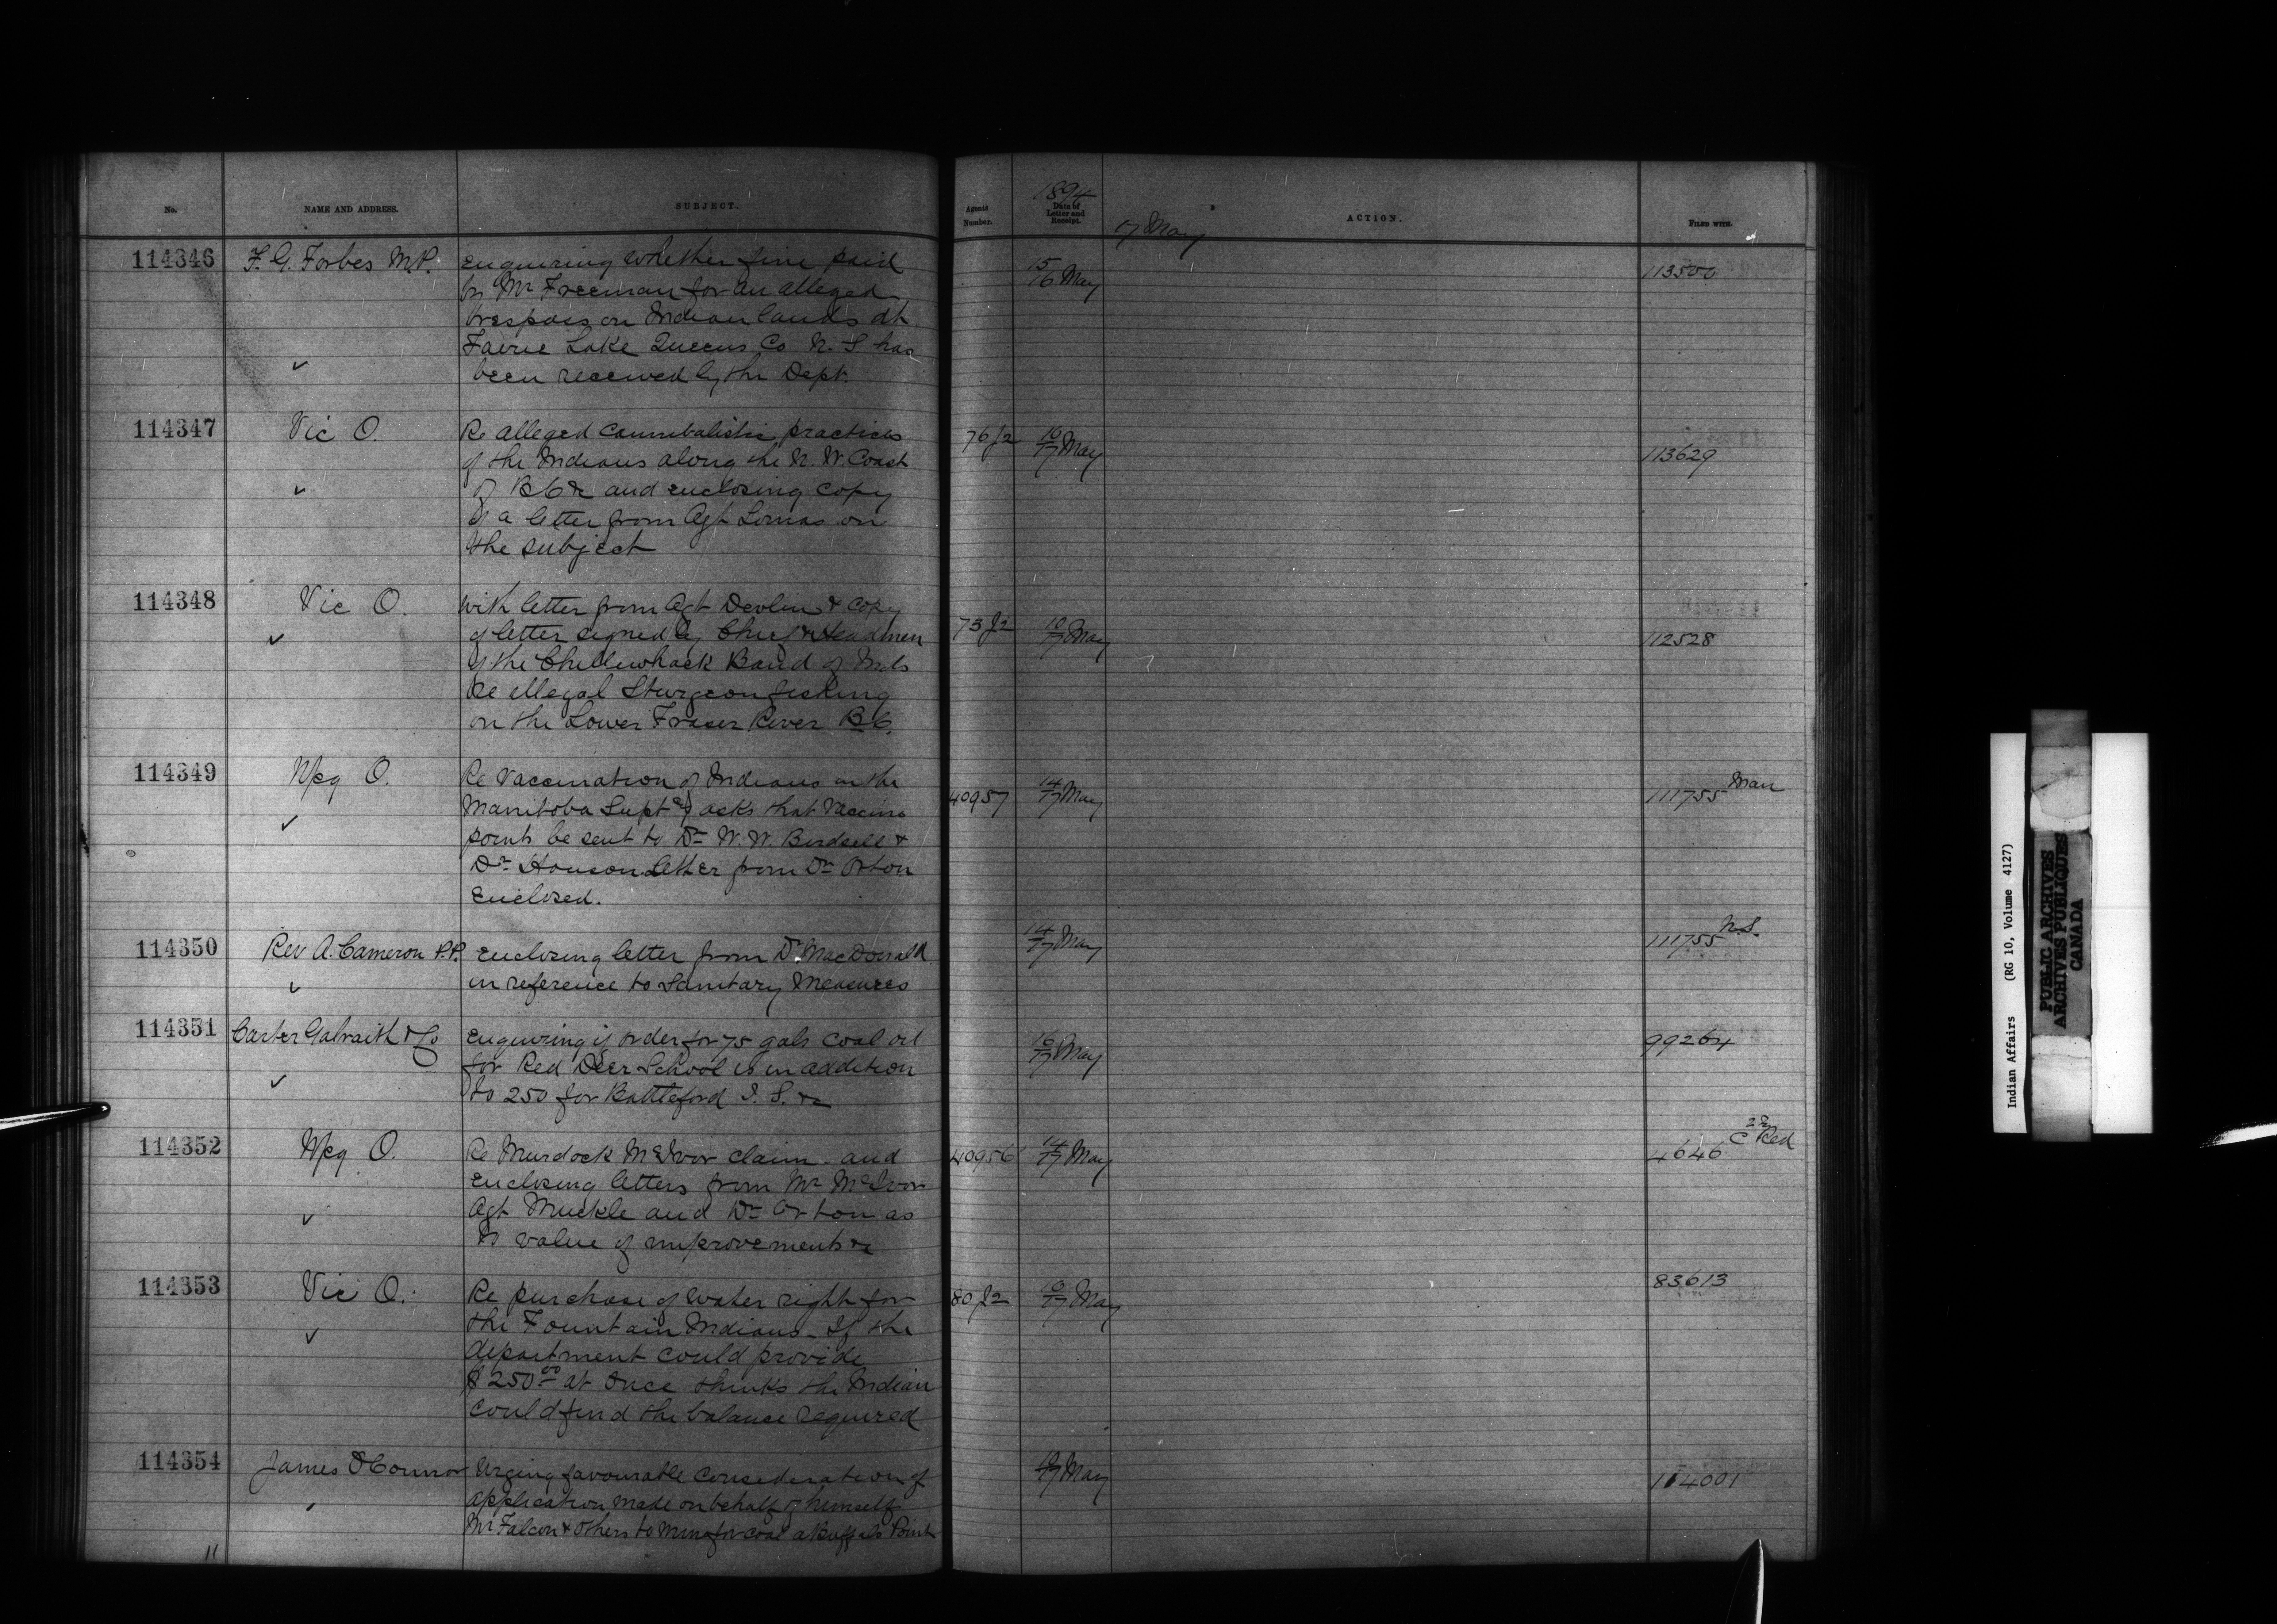 No.
NAME AND ADDRESS.
SUBJECT.
Agents Number.
1894
Date of Letter and Receipt.
17 May
ACTION.
FILED WITH.
114346
F. G. Forbes M.P.
Enquiring whether fine paid
by Mr Freeman for an alleged
trespass on Indian lands at
Faerie Lake Queens Co N. S has
been received by the Dept.
15/16 May
113500
114347
Vic O.
Re alleged cannibalistic practices
of the Indians along the N. W. Coast
of B C &c and enclosing copy
of a letter from Agt Lomas on
the subject
76 J2
10/17 May
113629
114348
Vic O.
With letter from Agt Devlin & copy
of letter signed by Chief & Headmen
of the Chilliwhack Band of Inds
Re illegal Sturgeon fishing
on the Lower Fraser River B C.
73 J2
10/17 May
112528
114349
Wpg O.
Re Vaccination of Indians in the
Manitoba Suptcy asks that Vaccine
points be sent to Dr W. W. Birdsell &
Dr Hanson letter from Dr Orton
Enclosed.
40957
14/17 May
111755 Man
114350
Rev A. Cameron P.P.
Enclosing letter from Dr MacDonald
in reference to Sanitary Measures
14/17 May
111755 N.S.
114351
Carter Galraith & Co
Enquiring if order for 75 gals coal oil
for Red Deer School is in addition
to 250 for Battleford I. S. &c
16/17 May
99264
114352
Wpg O.
Re Murdock McIvor claim - and
Enclosing letters from Mr McIvor
Agt Muckle and Dr Orton as
to value of improvements &c
40956
14/17 May
4646 C 2nd Red
114353
Vic O.
Re purchase of water right for
the Fountain Indians - If the
department could provide
$250.00 at once thinks the Indian
could find the balance required
80 J2
10/17 May
83613
114354
James O'Connor
Urging favourable consideration of
application made on behalf of himself
Mr Falcon & others to mine for coal a Buffalo Point
17 May
114001
11
Indian Affairs (RG 10, Volume 4127)
PUBLIC ARCHIVES
ARCHIVES PUBLIQUES
CANADA